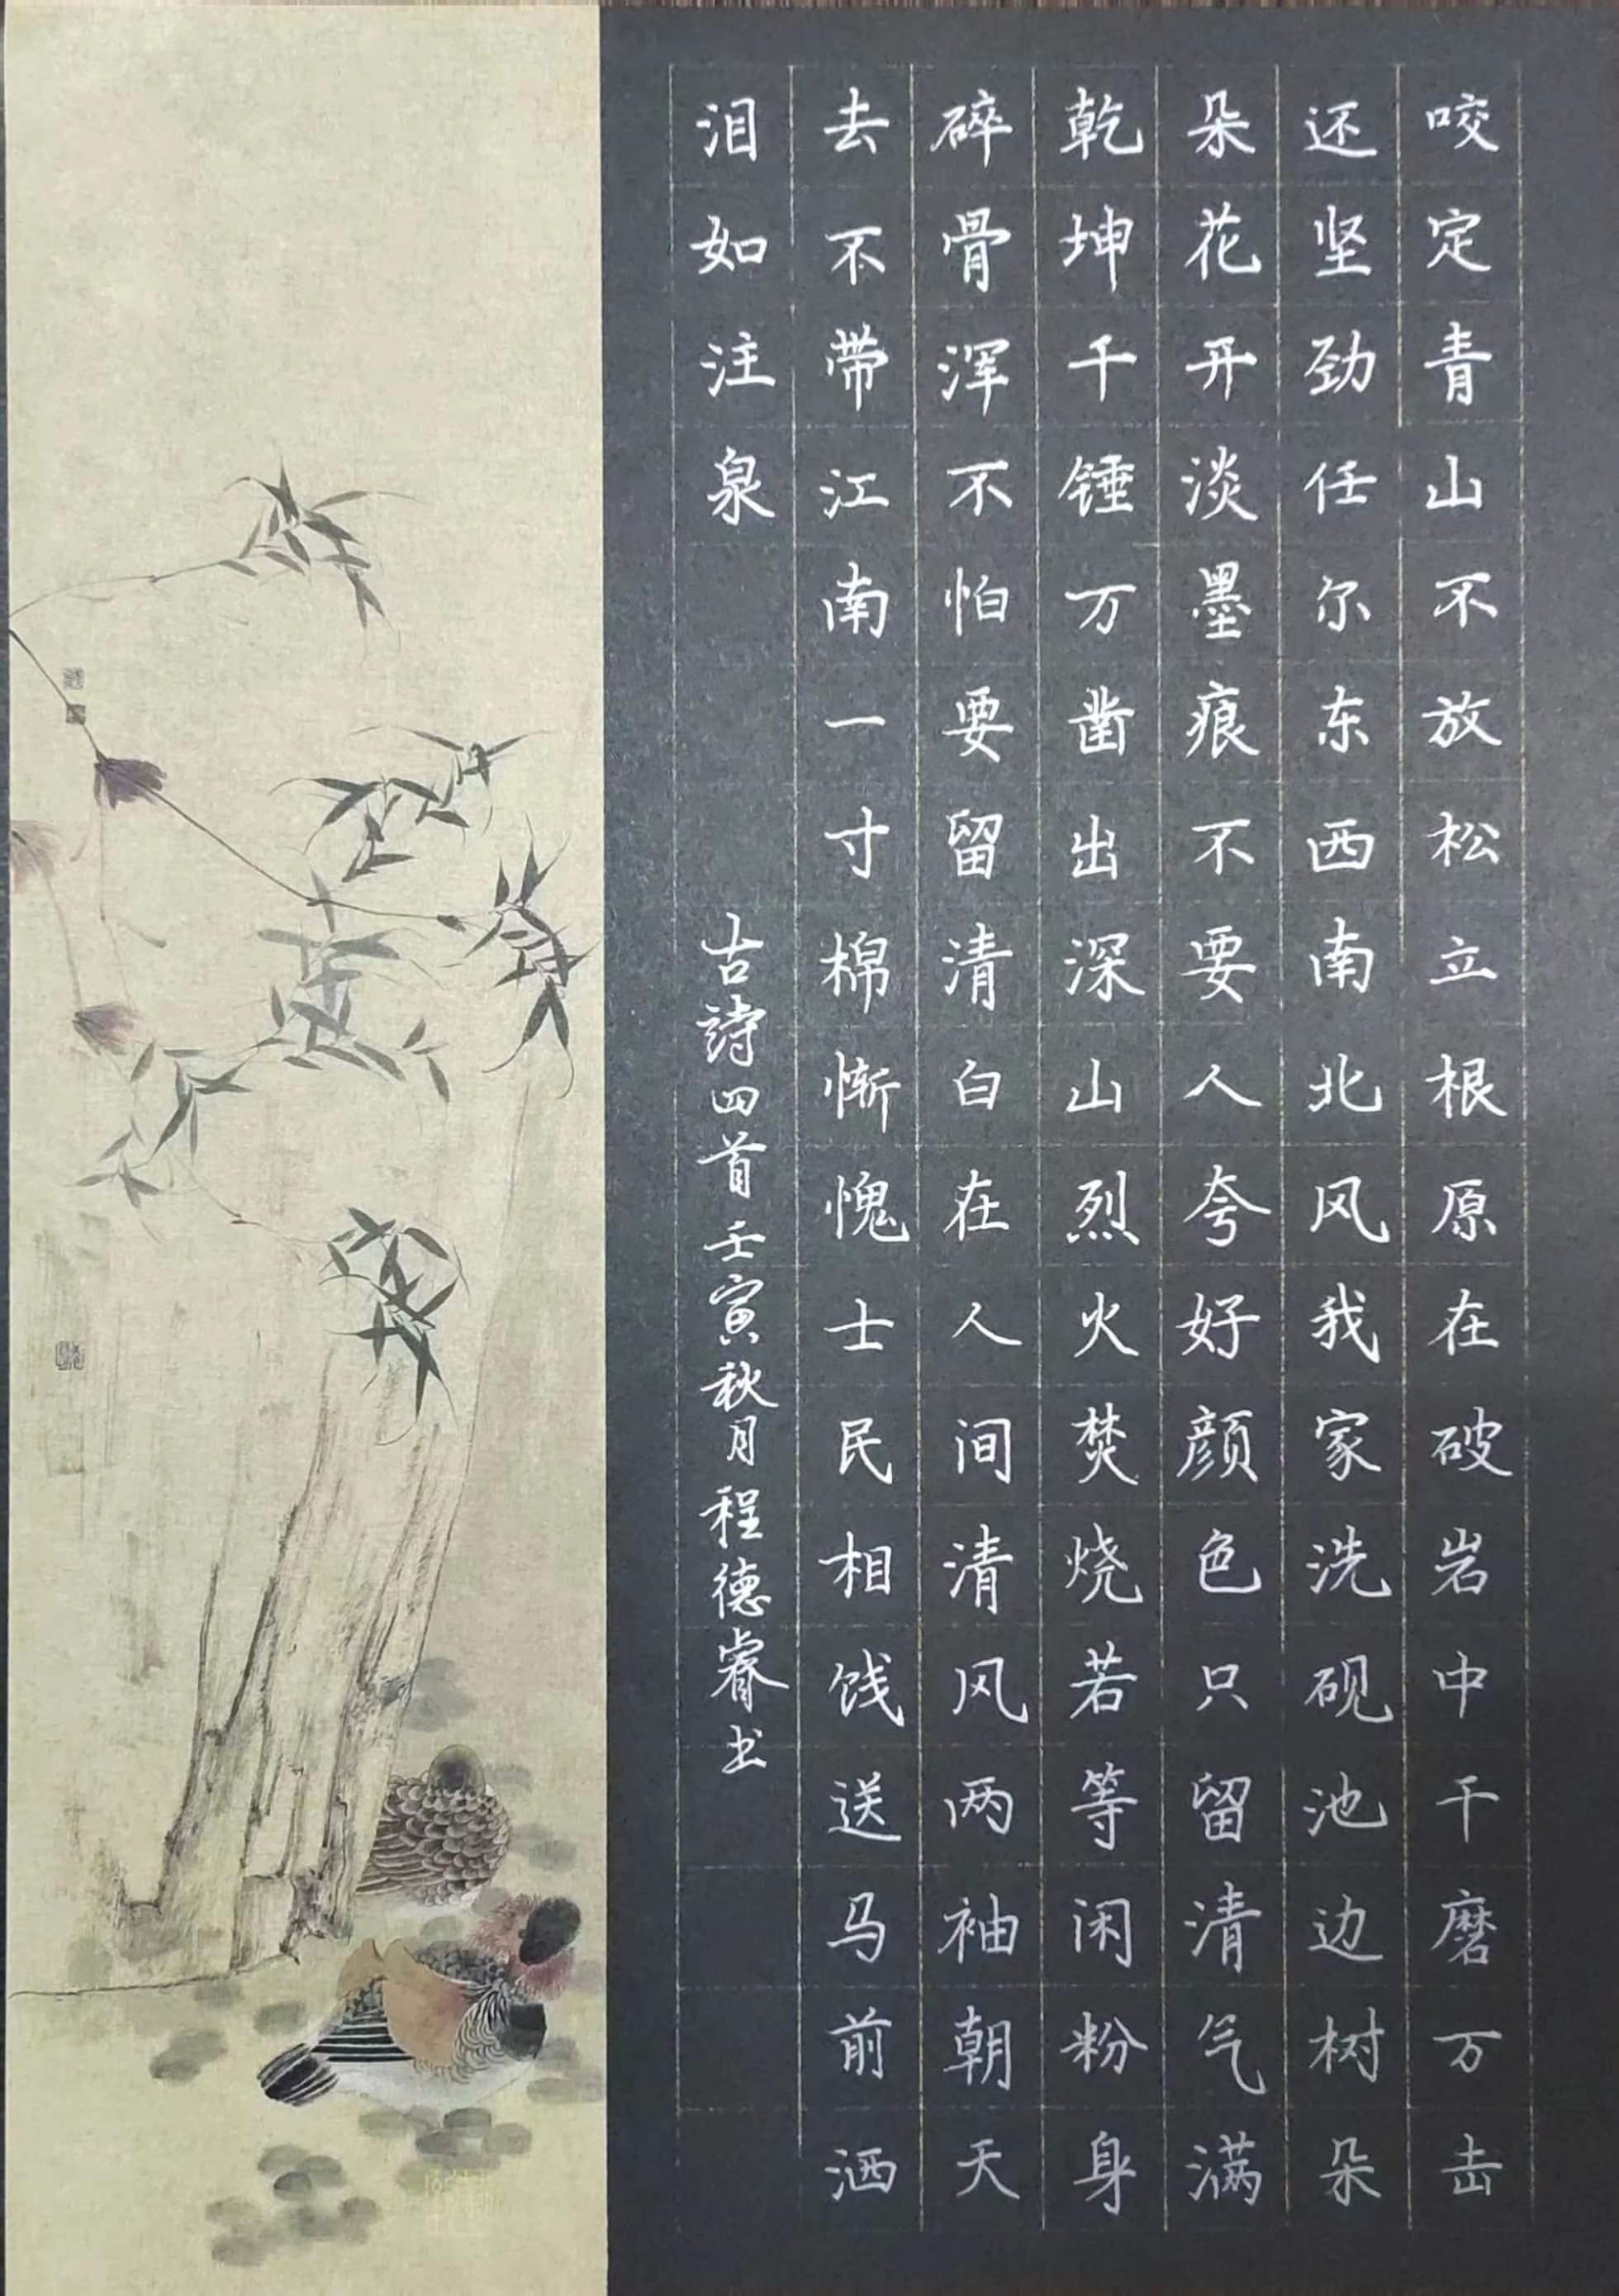 咬定青山不放松立根原在破岩中千磨万击
还坚劲任尔东西南北风我家洗砚池边树朵
朵花开淡墨痕不要人夸好颜色只留清气满
乾坤千锤万凿出深山烈火焚烧若等闲粉身
碎骨浑不怕要留清白在人间清风两袖朝天
去不带江南一寸棉惭愧士民相饯送马前洒
泪如注泉
古詩四首壬寅秋月程德睿书